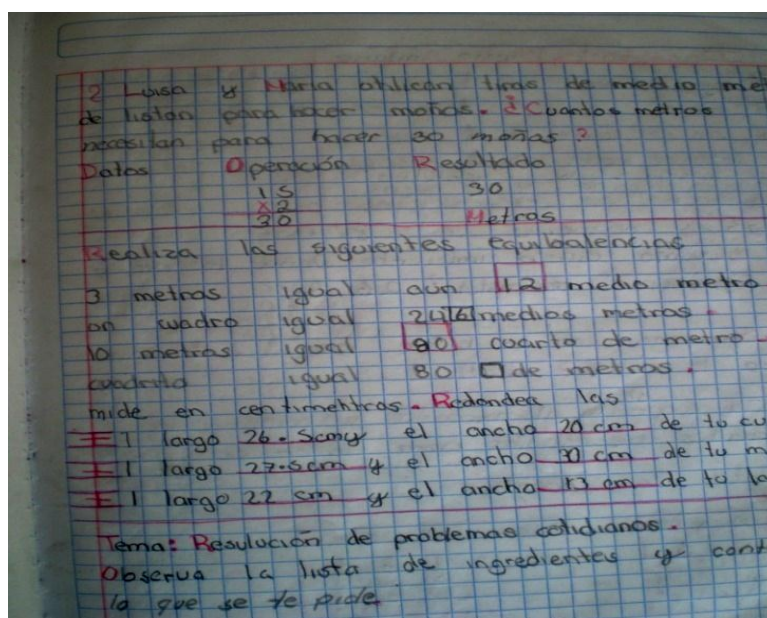 2 Luisa y María utilizan tiras de medio me
de liston para hacer moñas. ¿Cuantos metros
necesitan para hacer 30 moñas?
Datos Operación Resultado
15 30
x2
30 Metros
Realiza las siguientes equibalencias
3 metros igual aun 12 medio metro
un cuadro igual 24 6 medios metros.
10 metros igual 90 cuarto de metro.
cuadrito igual 80 de metros.
mide en centimehtros. Redondea las
El largo 26.5cm y el ancho 20 cm de tu cu
El largo 27.5cm y el ancho 30 cm de tu m
El largo 22 cm y el ancho 13 cm de to la
Tema: Resulución de problemas cotidianos.
Observa la lista de ingredientes y cont
lo que se te pide.